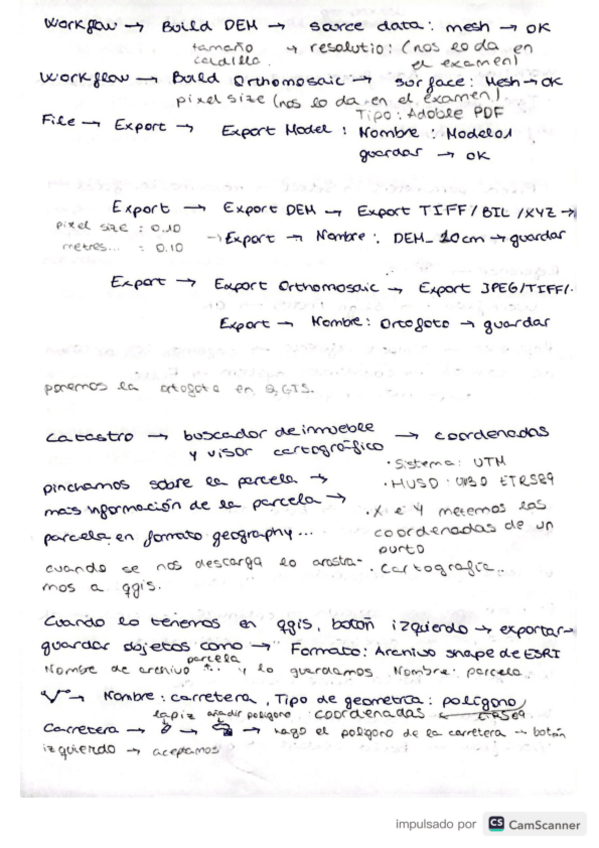 Workflow → Build DEM → source data: mesh → OK
tamaño → resolutio: (nos lo da en
cuadilla. el examen)
Workflow → Build Orthomosaic → surface: Mesh → OK
pixel size (nos lo da en el examen)
Tipo: Adoble PDF
File → Export → Export Model: Nombre: Modelo1
guardar → OK
Export → Export DEM → Export TIFF/BIL/XYZ →
pixel size: 0.10
metres... : 0.10
→ Export → Nombre: DEM_10cm → guardar
Export → Export Orthomosaic → Export JPEG/TIFF/.
Export → Nombre: Ortofoto → guardar
ponemos la ortofoto en Q,GIS.
Catastro → buscador de inmueble y visor cartográfico → coordenadas
· Sistema: UTM
pinchamos sobre la parcela → · HUSO: UV30 ETRS89
mas información de la parcela → · X e Y metemos las
parcela en formato geography... coordenadas de un punto
cuando se nos descarga lo arastra- · Cartografía..
mos a qgis.
Cuando lo tenemos en qgis, botón izquierdo → exportar →
guardar objetos como → Formato: Archivo shape de ESRI
Nombre de archivo parcela ... y lo guardamos Nombre: parcela.
V → Nombre: carretera, Tipo de geometría: polígono
lapiz añadir poligono coordenadas ETRS89.
Carretera → → → hago el poligono de la carretera → botón
izquierdo → aceptamos
impulsado por CS CamScanner